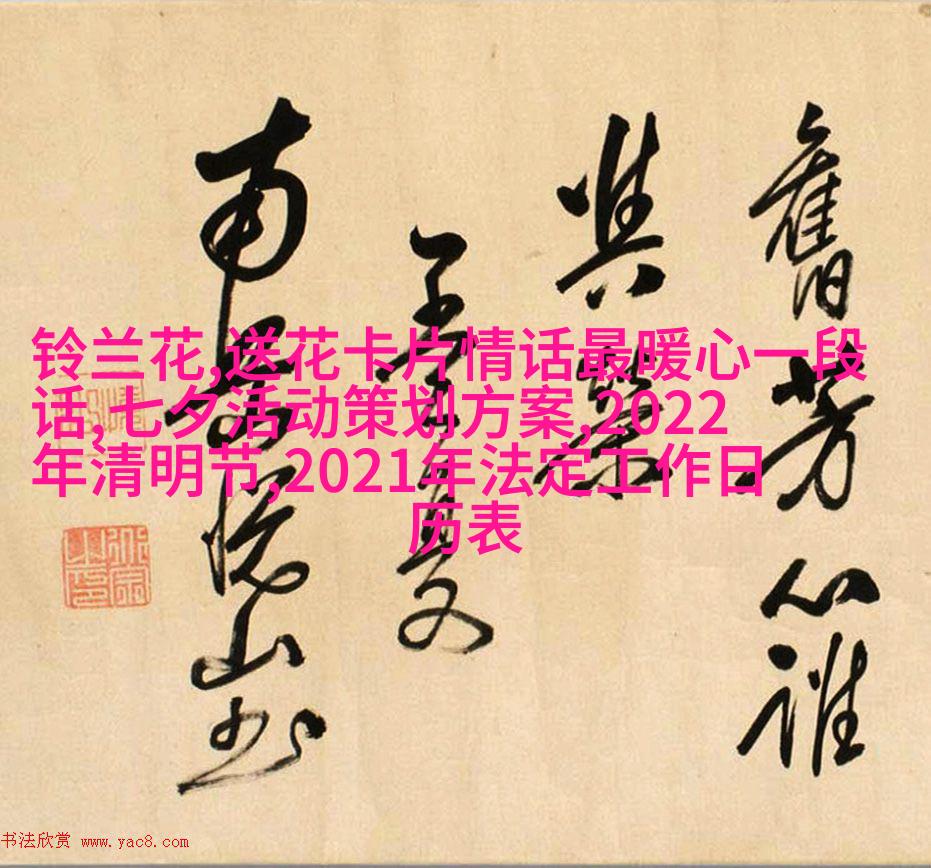 铃兰花,送花卡片情话最暖心一段
话,七夕活动策划方案,2022
年清明节,2021年法定工作日
历表
舊芳心誰
南悅山書
书法欣赏 www.yac8.com